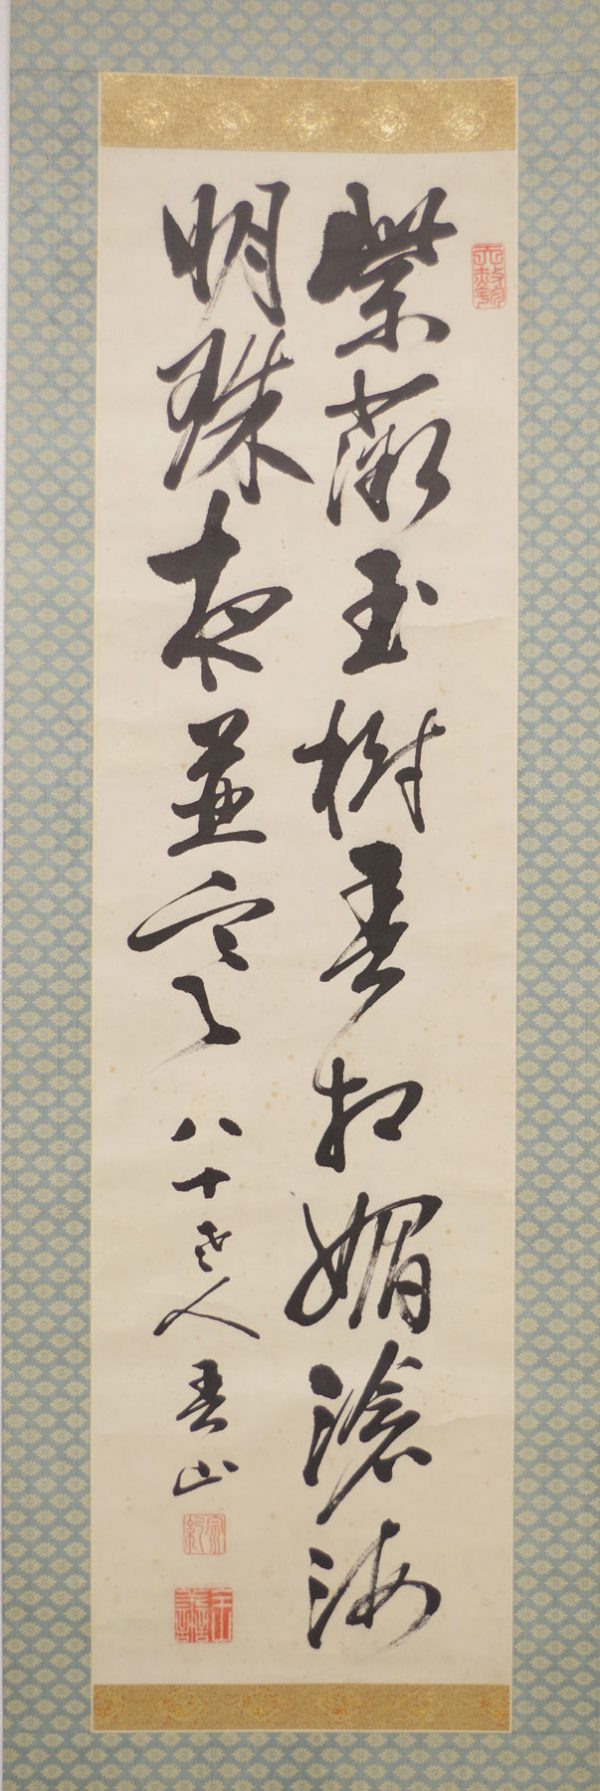 紫薇玉樹春相媚滄海
明珠夜並寒 八十老人春山